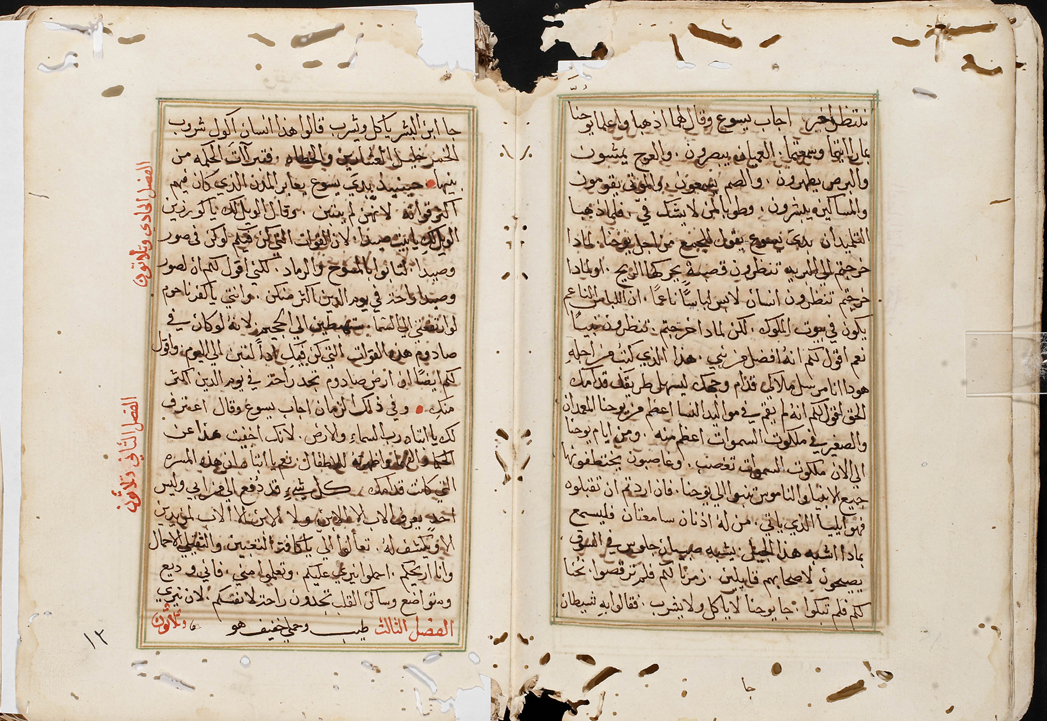 ننتظر اخر. اجاب يسوع وقال لهما اذهبا واعلما يوحنا
بما رايتما وسمعتما. العميان يبصرون. والعرج يمشون
والبرص يطهرون. والصم يسمعون. والموتى يقومون
والمساكين يبشرون. وطوبا لمن لا يشك في. فلما ذهبا
التلميذان بدى يسوع يقول للجميع من اجل يوحنا. لماذا
خرجتم الى البريه تنظرون قصبة يحركها الريح. او لماذا
خرجتم تنظرون انسان لابس لباسًا ناعمًا. ان اللباس الناعم
يكون في بيوت الملوك. لكن لماذا خرجتم. تنظرون نبيًا
نعم اقول لكم انه افضل من نبي. هذا الذي كتب من اجله
هوذا انا مرسل ملاكي قدام وجهك ليسهل طريقك قدامك
الحق اقول لكم انه لم يقم في مواليد النسا اعظم من يوحنا المعمدان
والصغير في ملكوت السموات اعظم منه. ومن ايام يوحنا
الى الان ملكوت السموات تغصب. وغاصبون يختطفونها
جميع الانبيا والناموس تنبوا الى يوحنا. فان اردتم ان تقبلوه
فهو ايليا الذي ياتي. من له اذنان سامعتان فليسمع
بماذا اشبه هذا الجيل. يشبه صبيان جلوس في السوق
يصيحون لاصحابهم قايلين. زمرنا لكم فلم ترقصوا نحنا
لكم فلم تبكوا. جا يوحنا لا ياكل ولا يشرب. فقالوا به شيطان
جا
جا ابن البشر ياكل ويشرب قالوا هذا انسان اكول شروب
الخمر خليل العشارين والخطاه. فتبررت الحكمه من
بنيها. حينيذ بدى يسوع يعاير المدن الذي كان فيهم
اكثر قواته لانهن لم يتبن. وقال الويل لك يا كورزين
الويل لك يا بيت صيدا. لان القوات التي كن فيكم لو كن في صور
وصيدا. لتابوا بالمسوح والرماد. لكني اقول لكم ان لصور
وصيدا راحة في يوم الدين اكثر منكن. وانتي يا كفرناحوم
لو ارتفعتي الى السما. ستهبطين الى الجحيم. لانه لو كان في
صادوم هذه القوات التي كن فيك اذًا لثبتت الى اليوم. واقول
لكم ايضًا ان ارض صادوم تجد راحة في يوم الدين اكثر
منك. وفي ذلك الزمان اجاب يسوع وقال اعترف
لك يا ابتاه رب السماء والارض. لانك اخفيت هذا عن
الحكما واظهرته للاطفال نعم يا ابتاه ان هذه المسره
التي كانت قدامك. كل شيء قد دفع الي من ابي وليس
احد يعرف الاب الا الابن. ولا الابن الا الاب لمن يريد
الابن يكشف له. تعالوا الي يا كافة المتعبين والثقيلي الاحمال
وانا اريحكم. احملوا نيري عليكم. وتعلموا مني. فاني وديع
ومتواضع وساكن القلب تجدون راحة لانفسكم. لان نيري
طيب وحملي خفيف هو الفصل الثالث وثلاثون
الفصل الحادى وثلاثون
الفصل الثاني وثلاثون
١٢